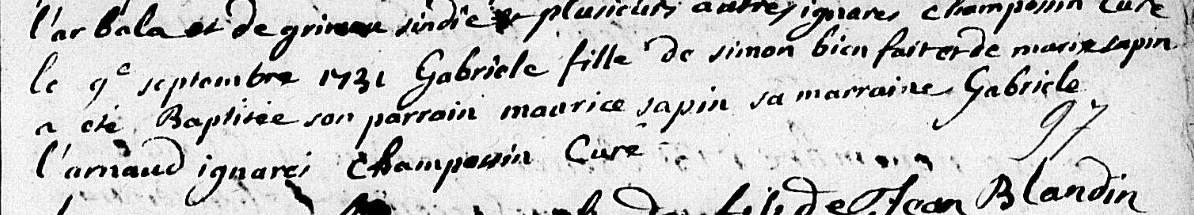 l'arbala et de grimau sindic et plusieurs autres ignares champossin Curé
le 9e septembre 1731 Gabriele fille de simon bienfait et de marie sapin
a été Baptisée son parrain maurice sapin sa marraine Gabriele
l'arnaud ignares champossin Curé
97
fils de Jean Blandin